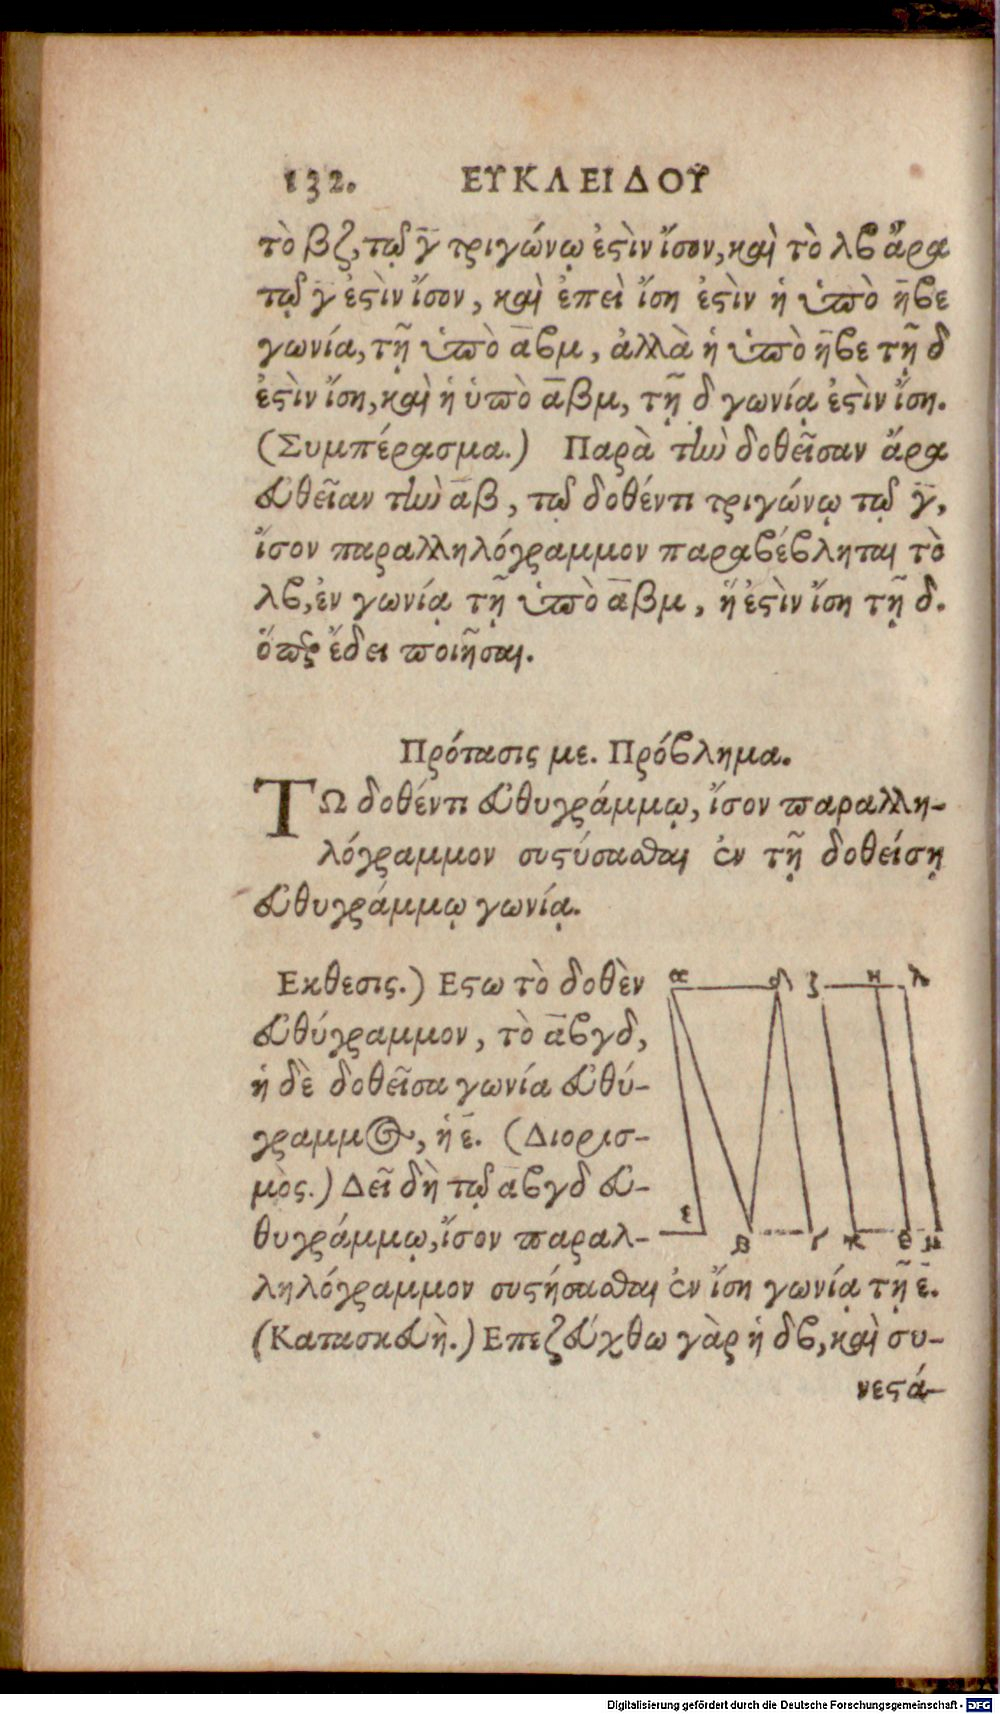 132. ΕΥΚΛΕΙΔΟΥ
τὸ βζ, τῷ γ̄ τριγώνῳ ἐϛὶν ἴσον, καὶ τὸ λϐ ἄρα
τῷ γ̄ ἐϛὶν ἴσον, καὶ ἐπεὶ ἴση ἐϛὶν ἡ ὑπὸ η̄ϐε
γωνία, τῇ ὑπὸ ᾱϐμ, ἀλλὰ ἡ ὑπὸ η̄ϐε τῇ δ
ἐϛὶν ἴση, καὶ ἡ ὑπὸ ᾱβμ, τῇ δ γωνίᾳ ἐϛὶν ἴση.
(Συμπέρασμα.) Παρὰ τὴν δοθεῖσαν ἄρα
εὐθεῖαν τὴν ᾱβ, τῷ δοθέντι τριγώνῳ τῷ γ̄,
ἴσον παραλληλόγραμμον παραϐέϐληται τὸ
λϐ, ἐν γωνίᾳ τῇ ὑπὸ ᾱβμ, ἥ ἐϛὶν ἴση τῇ δ.
ὅπερ ἔδει ποιῆσαι.
Πρότασις με. Πρόϐλημα.
ΤΩ δοθέντι εὐθυγράμμῳ, ἴσον παραλλη-
λόγραμμον συϛύσασθαι ἐν τῇ δοθείσῃ
εὐθυγράμμῳ γωνίᾳ.
Εκθεσις.) Εϛω τὸ δοθὲν
εὐθύγραμμον, τὸ ᾱϐγδ,
ἡ δὲ δοθεῖσα γωνία εὐθύ-
γραμμος, ἡ ε̄. (Διορισ-
μὸς.) Δεῖ δὴ τῷ ᾱϐγδ εὐ-
θυγράμμῳ, ἴσον παραλ-
ληλόγραμμον συϛήσασθαι ἐν ἴση γωνίᾳ τῇ ε̄.
(Κατασκευὴ.) Επεζεύχθω γὰρ ἡ δϐ, καὶ συ-
νεϛά-
α δ ζ η λ
ε β γ κ θ μ
Digitalisierung gefördert durch die Deutsche Forschungsgemeinschaft - DFG